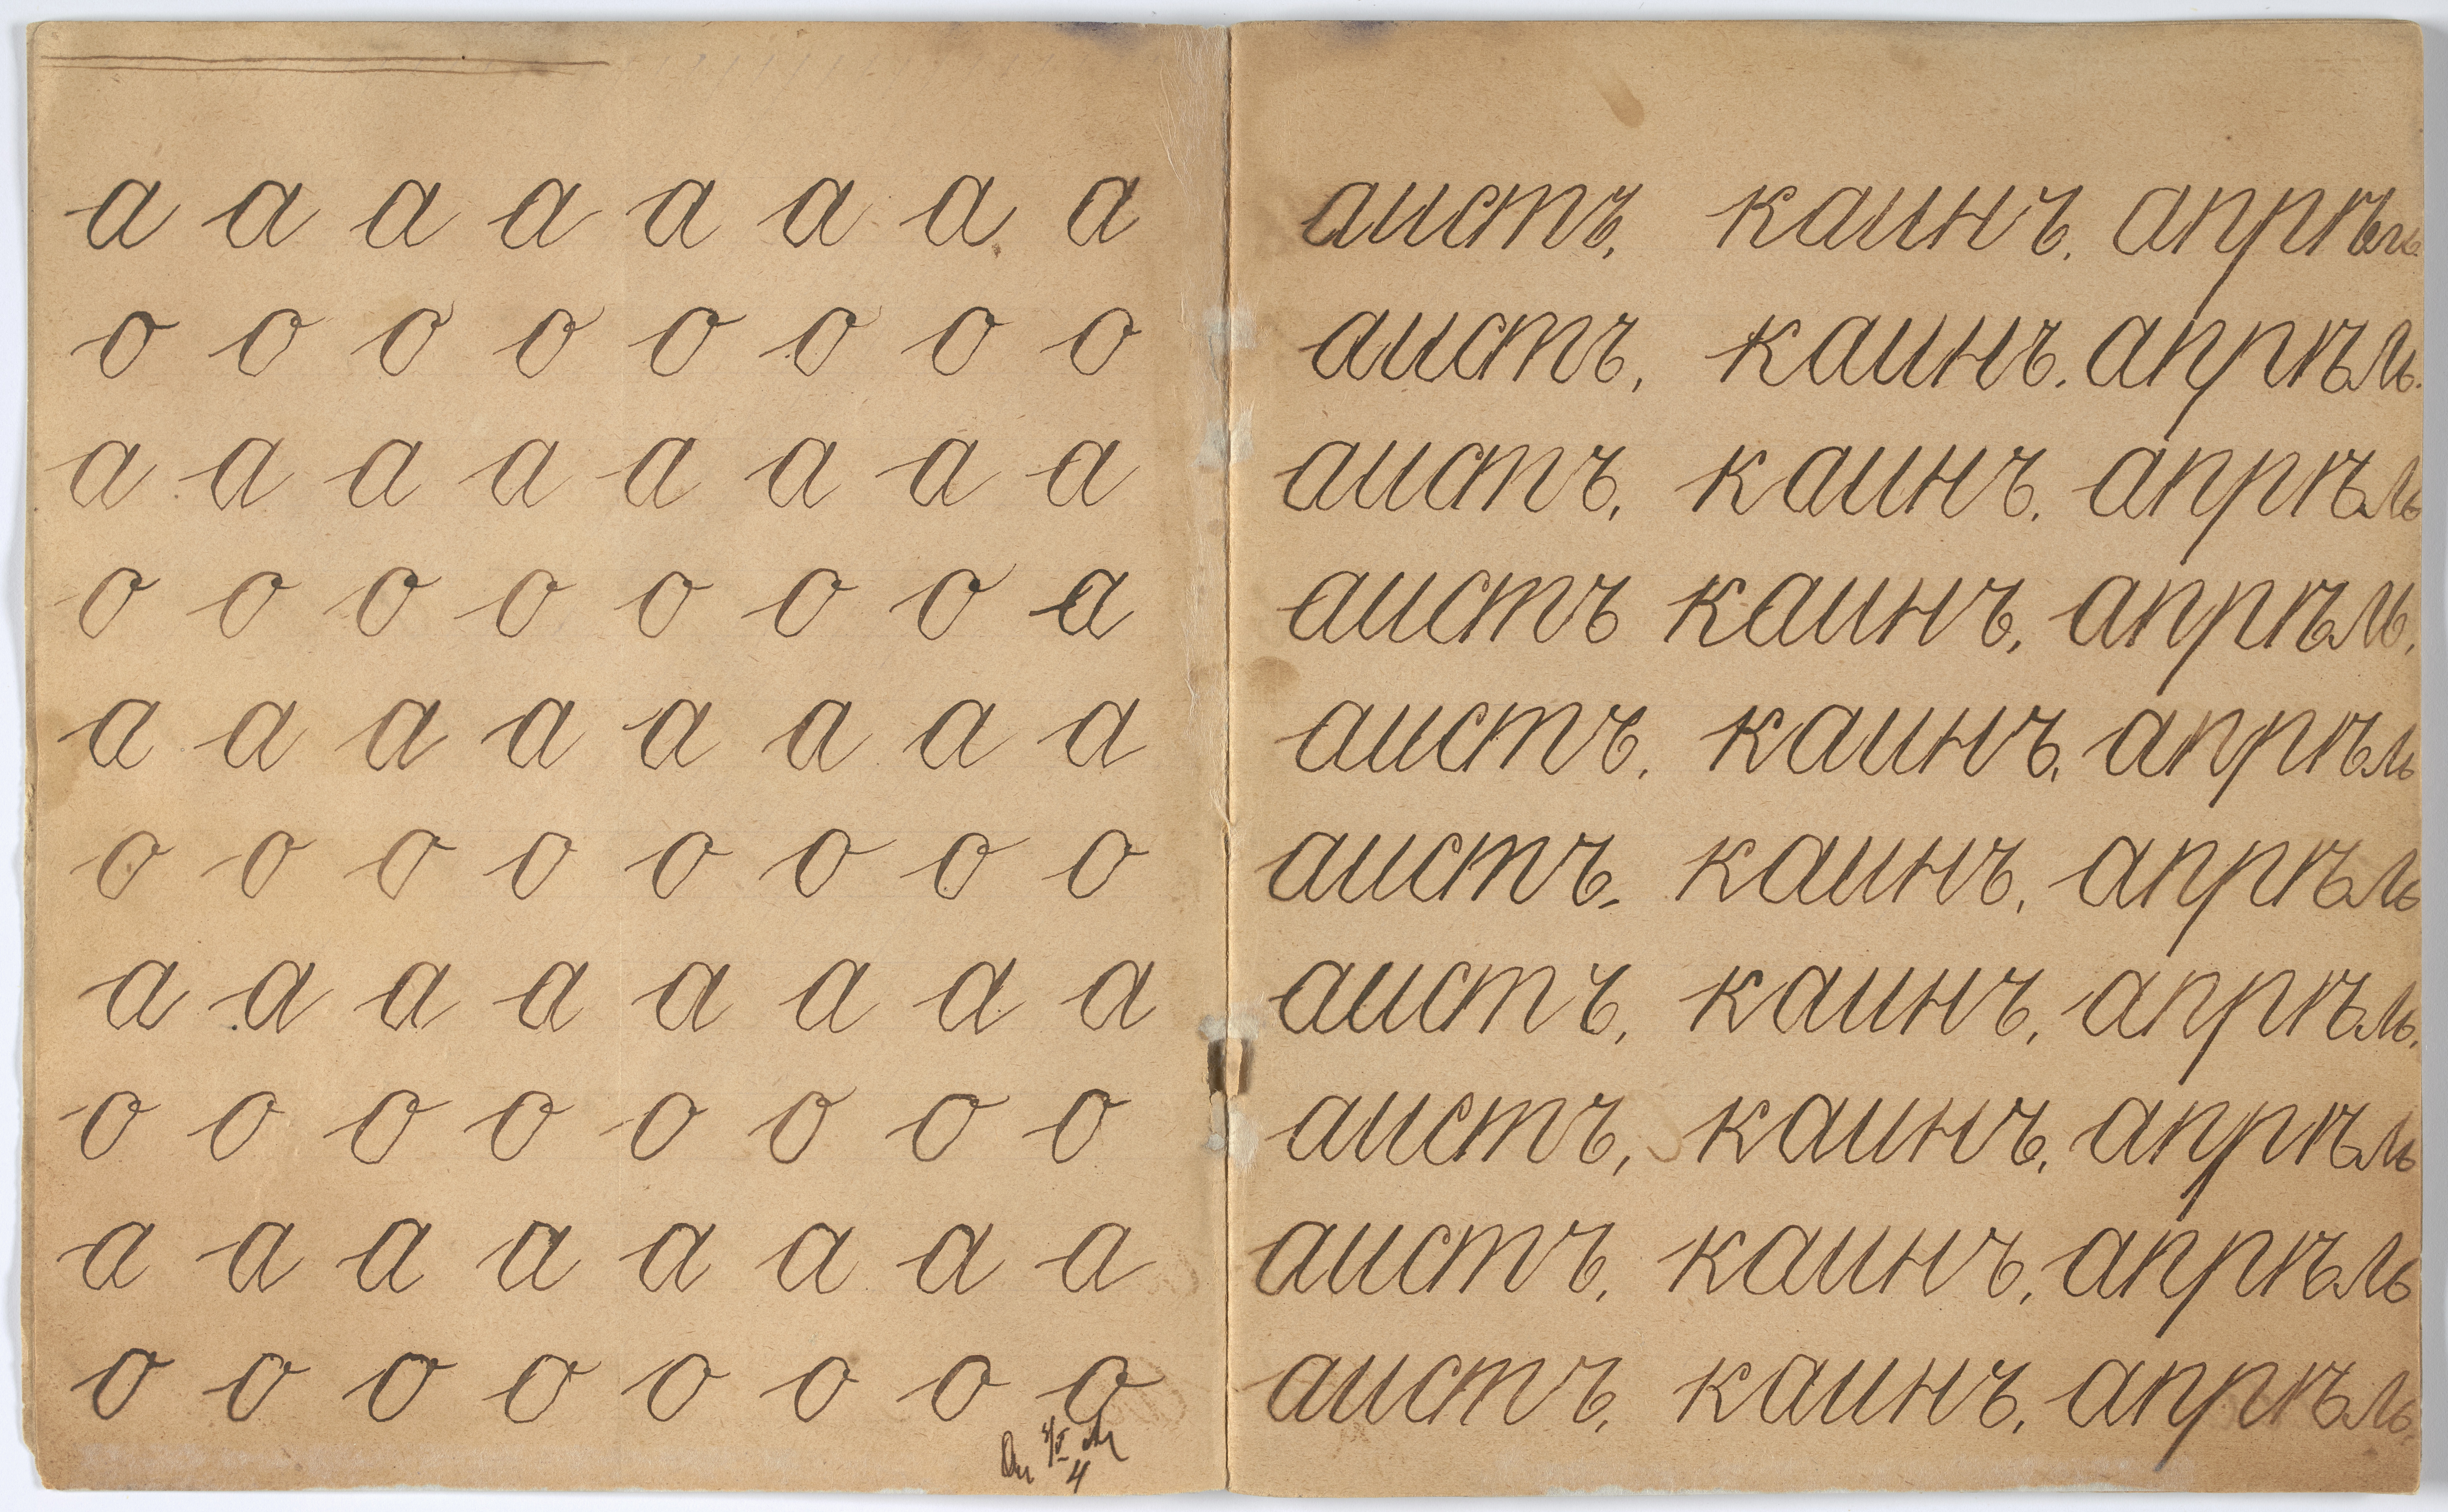 а а а а а а а а
о о о о о о о о
а а а а а а а а
о о о о о о о а
а а а а а а а а
о о о о о о о о
а а а а а а а а
о о о о о о о о
а а а а а а а а
о о о о о о о о
4
аистъ, каинъ, апрѣль.
аистъ, каинъ. апрѣль.
аистъ, каинъ. апрѣль
аистъ каинъ, апрѣль,
аистъ. каинъ, апрѣль
аистъ. каинъ, апрѣль
аистъ, каинъ, апрѣль,
аистъ, каинъ, апрѣль
аистъ, каинъ, апрѣль
аистъ, каинъ, апрѣль,